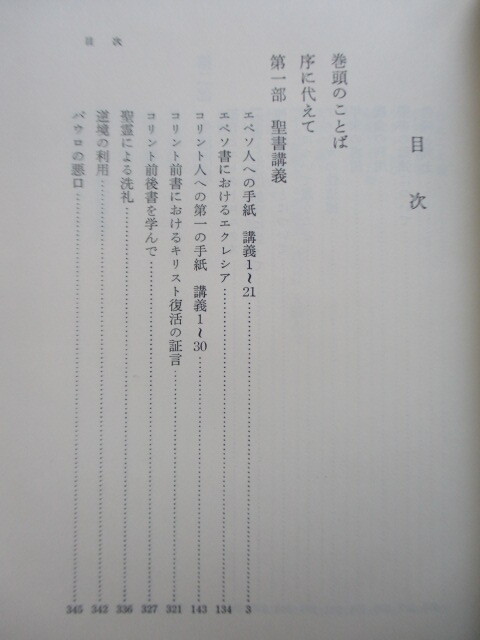 目次
巻頭のことば
序に代えて
第一部 聖書講義
エペソ人への手紙 講義1～21 3
エペソ書におけるエクレシア 134
コリント人への第一の手紙 講義1～30 143
コリント前書におけるキリスト復活の証言 321
コリント前後書を学んで 327
聖霊による洗礼 336
逆境の利用 342
パウロの悪口 345
目次